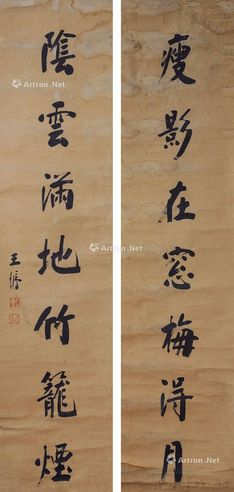 瘦影在窓梅得月
陰雲滿地竹籠煙
Artron.Net
Artron.Net
Artron.Net
Artron.Net